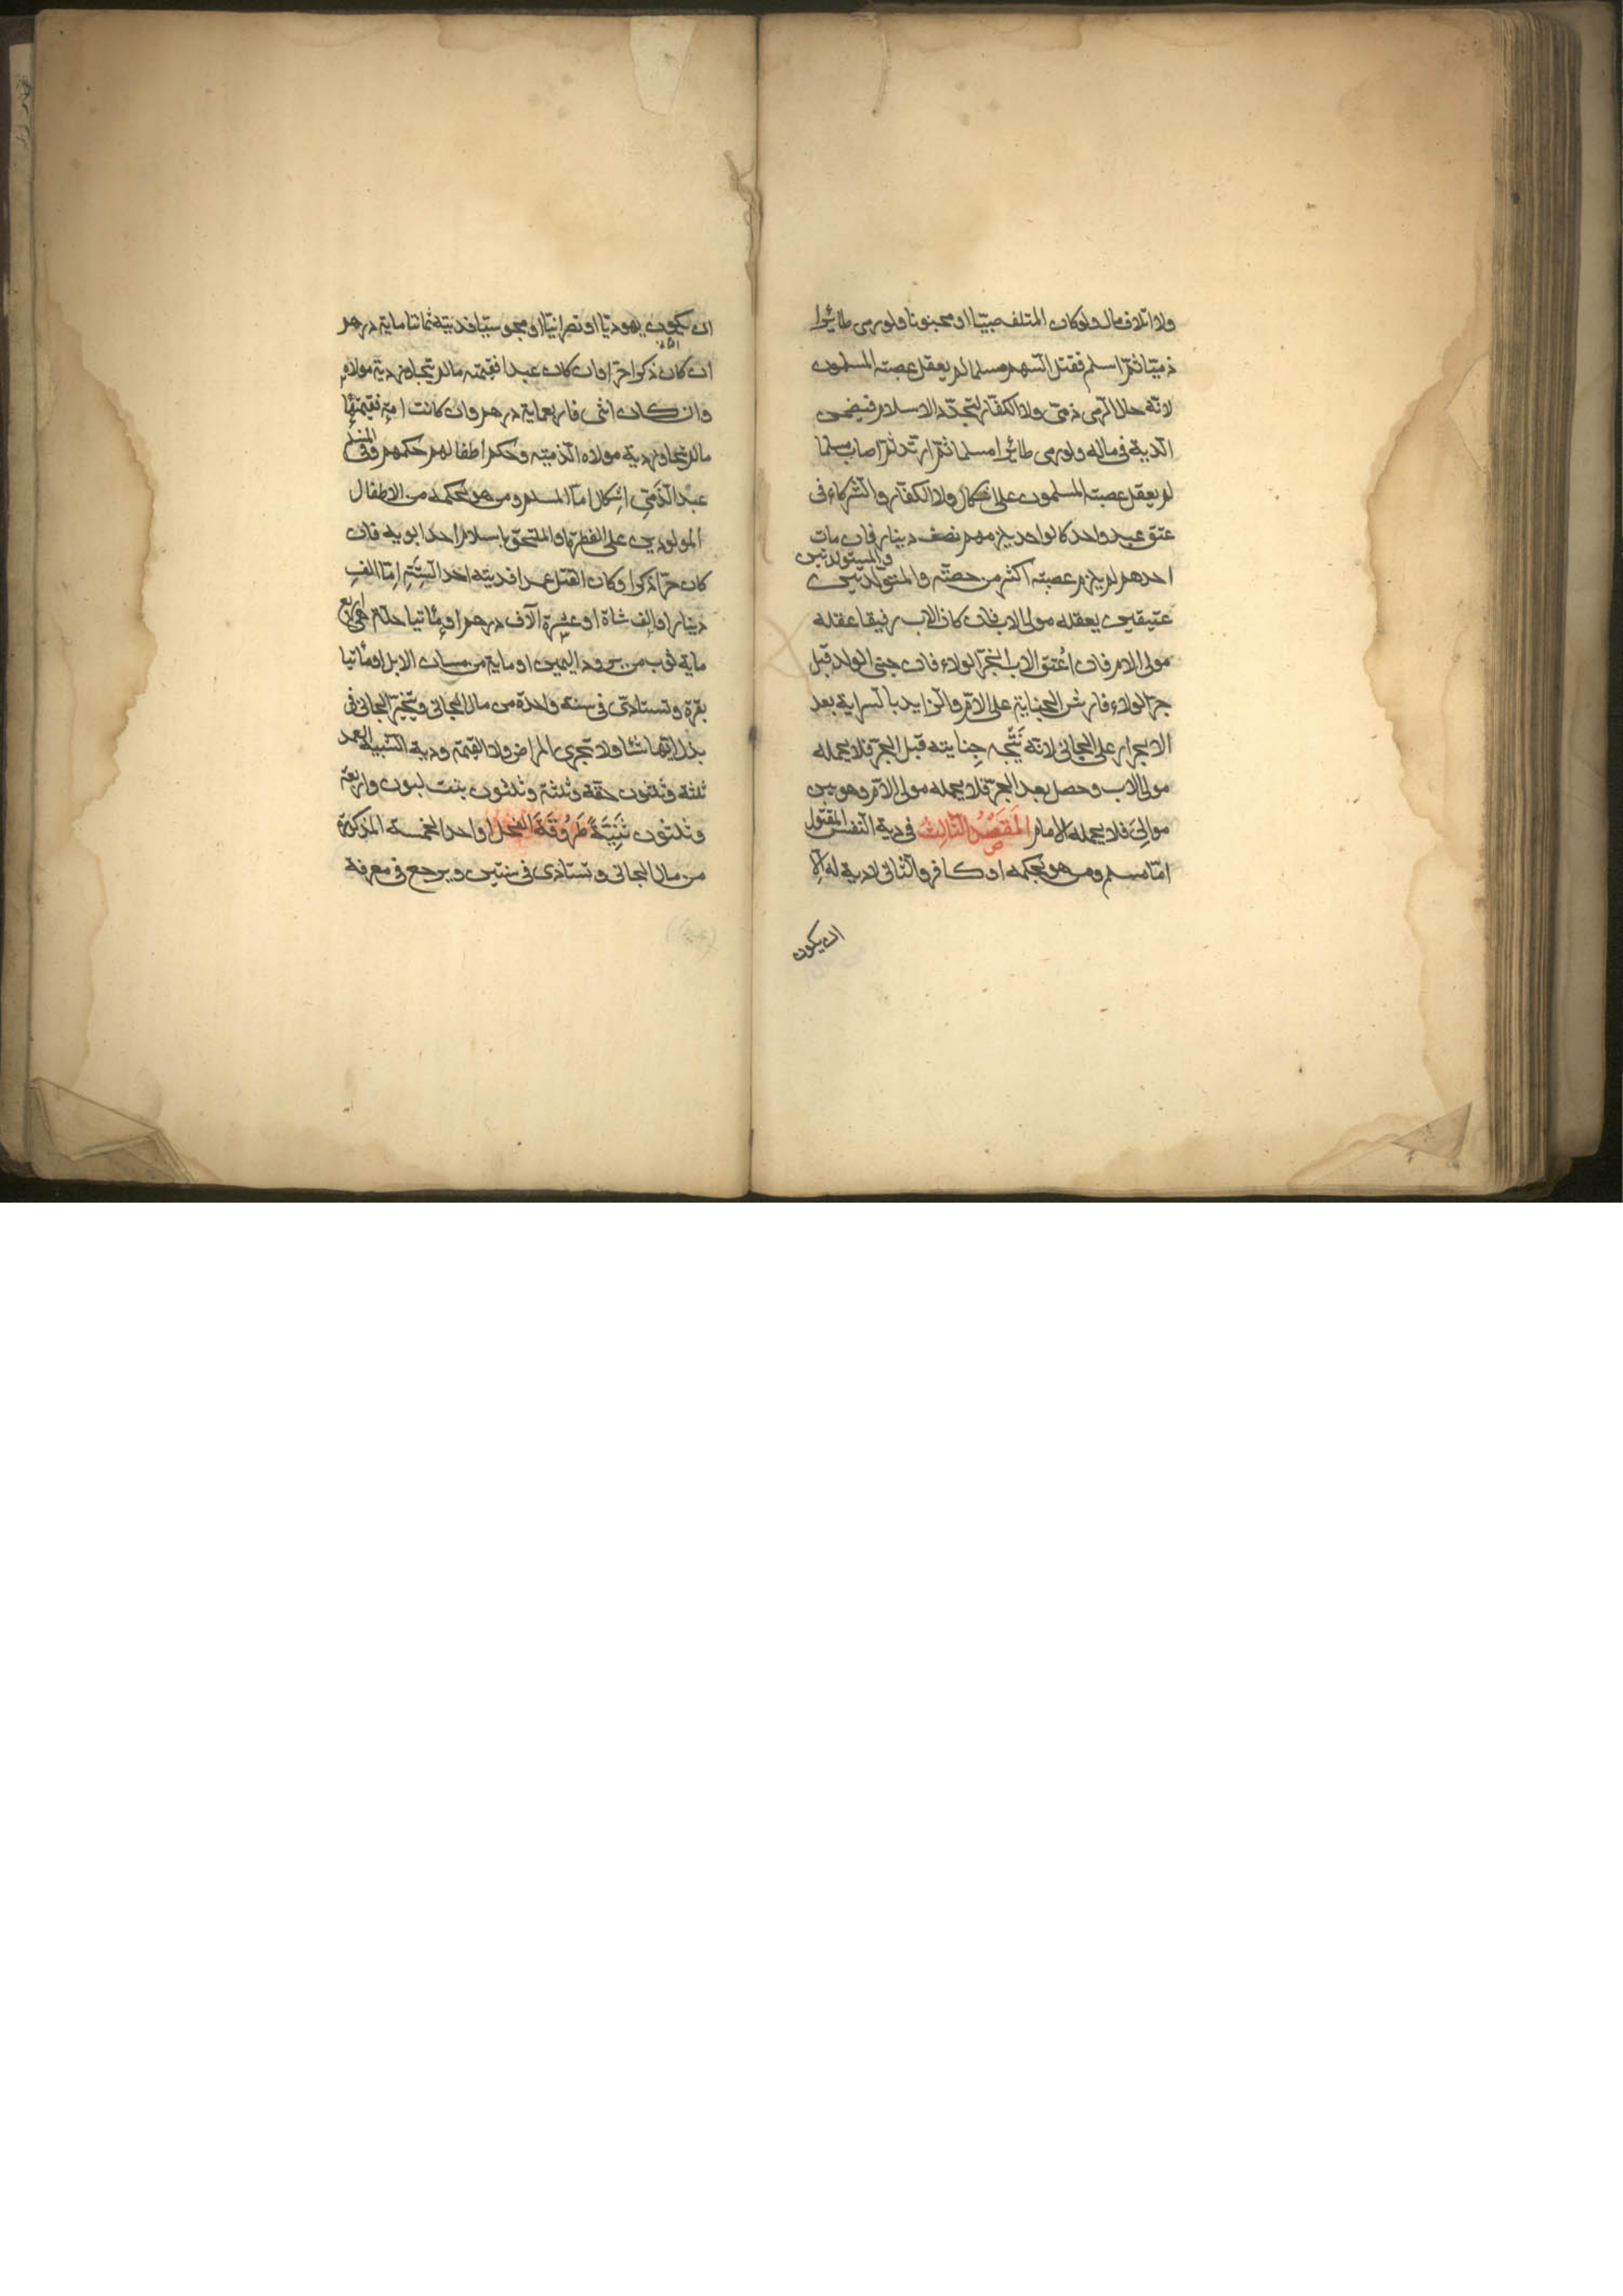 ولا اتلاف مال ولو كان المتلف صبيّا او مجنونا ولو رمى طائرا
ذميّا ثمّ اسلم فقتل السّهم مسلما لم يعقل عصبته المسلمون
لانّه حال الرّمى ذمّى ولا الكفّار لتجدّد الاسلام فيضمن
الدية فى ماله ولو رمى طائرا مسلما ثمّ ارتدّ ثمّ اصاب مسلما
لم يعقل عصبته المسلمون على اشكال ولا الكفّار والشركاء فى
عتق عبد واحد كالواحد يلزمهم نصف دينار فان مات
والمستولدتين
احدهم لم يلزم عصبته اكثر من حصّته والمتولد بين
عتيقين يعقله مولى الاب فان كان الاب رقيقا عقله
مولى الام فان اُعتق الاب انجرّ الولاء فان جنى الولد قبل
جرّ الولاء فارش الجناية على الامّ والزايد بالسراية بعد
الانجرار على الجانى لانّه نتيجة جنايته قبل الجرّ فلا يحمله
مولى الاب وحصل بعد الجرّ فلا يحمله مولى الامّ وهو بين
موالىَ فلا يحمله الامام المَقصَدُ الثّالِثُ فى دية النّفس المقتول
امّا مسلم ومن هو بحكمه او كافر والثانى لا دية له الّا
ان يكون
ان يكون يهوديّا او نصرانيّا او مجوسيّا فديته ثمانمائة درهم
ان كان ذكرا حرّا وان كان عبدا فقيمته ما لم يتجاوز دية مولاه
وان كان انثى فاربعماية درهم وان كانت امة فقيمتها
ما لم يتجاوز دية مولاه الذميّة وحكم اطفالهم حكمهم وفى المسلم
عبْد الذّمّىِ اِشكال امّا المسلم ومن هو بحكمه من الاطفال
المولودين على الفطرة او الملتحق باسلام احد ابويه فان
كان حرّا ذكرا وكان القتل عمدا فديته احد السِتَّةِ اِمّا الف
دينار او الف شاة او عشرة آلاف درهم او مأتيا حلّة هى اربع
ماية ثوب من برود اليمن او ماية من مسان الابل او مأتيا
بقرة وتستادى فى سنة واحدة من مال الجانى ويتخيّر الجانى فى
بذل ايّها شاء ولا تجزى المراض ولا القيمة ودية الشّبيه العمد
ثلثة وثلثون حقّة وثلثة وثلثون بنت لبون واربعة
وثلثون ثَنِيَّةً طَرُوقَةَ الفحل او احد الخمسة المذكورة
من مال الجانى وتستادى فى سنتين ويرجع فى معرفة